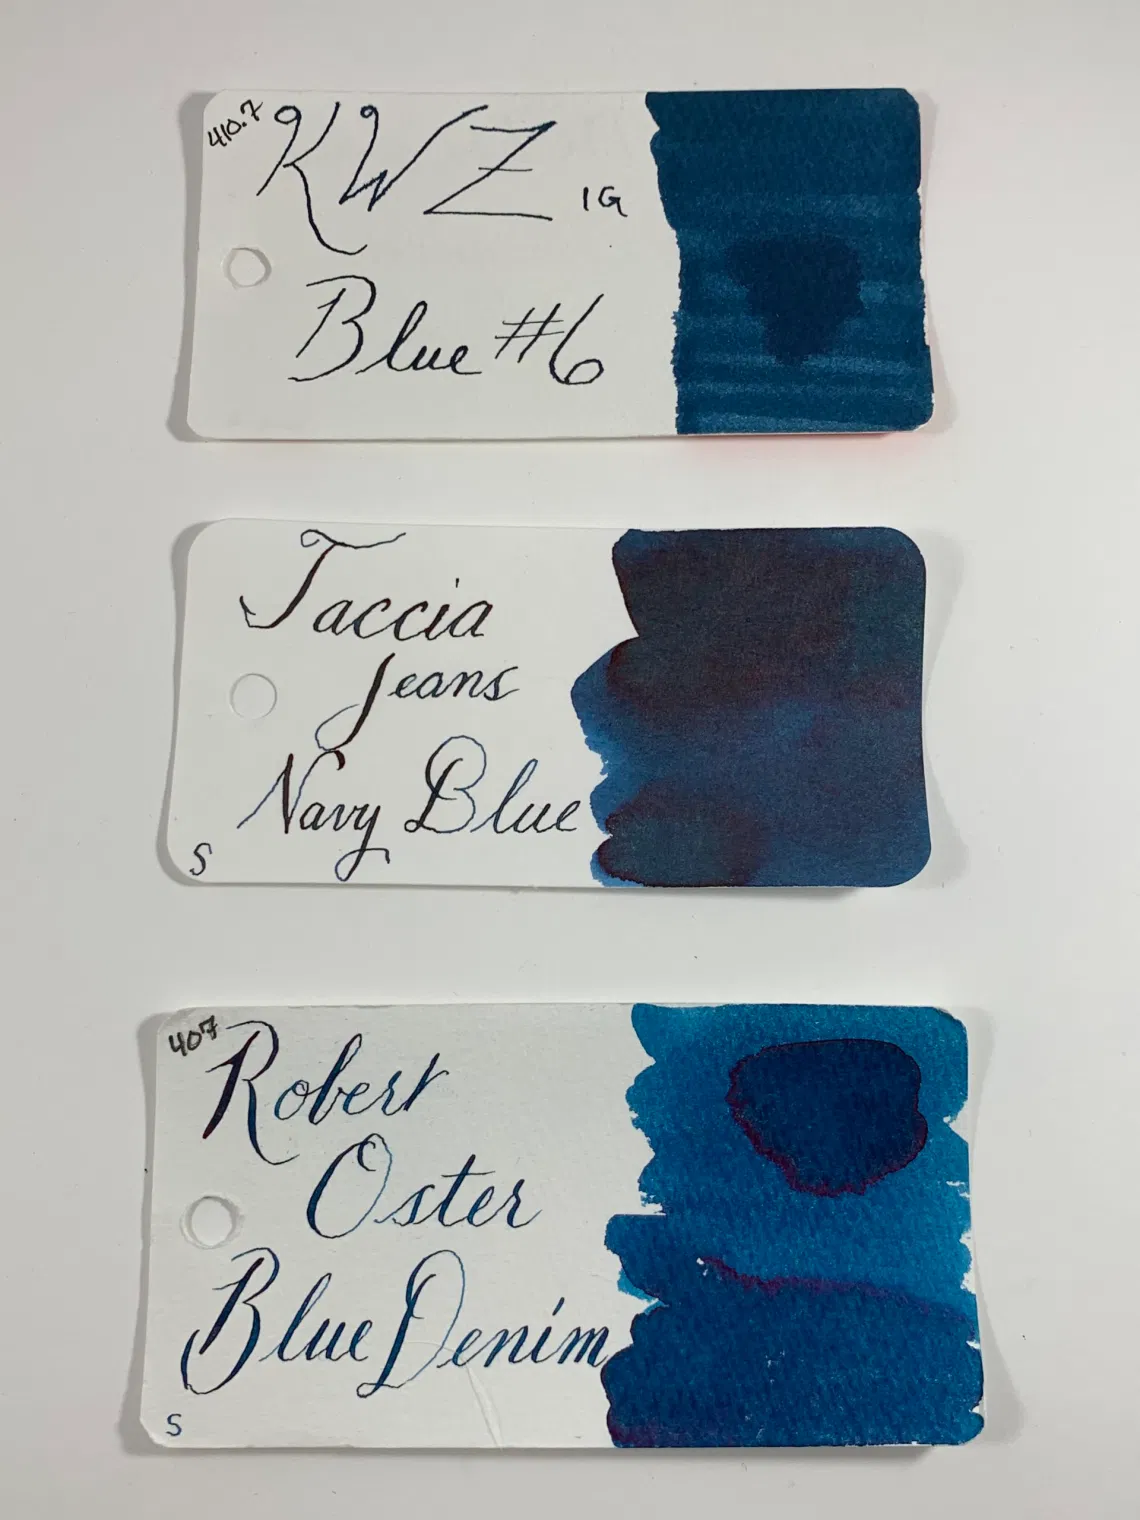 410.7
KWZ IG
Blue #6
Taccia
Jeans
Navy Blue
S
407
Robert
Oster
Blue Denim
S